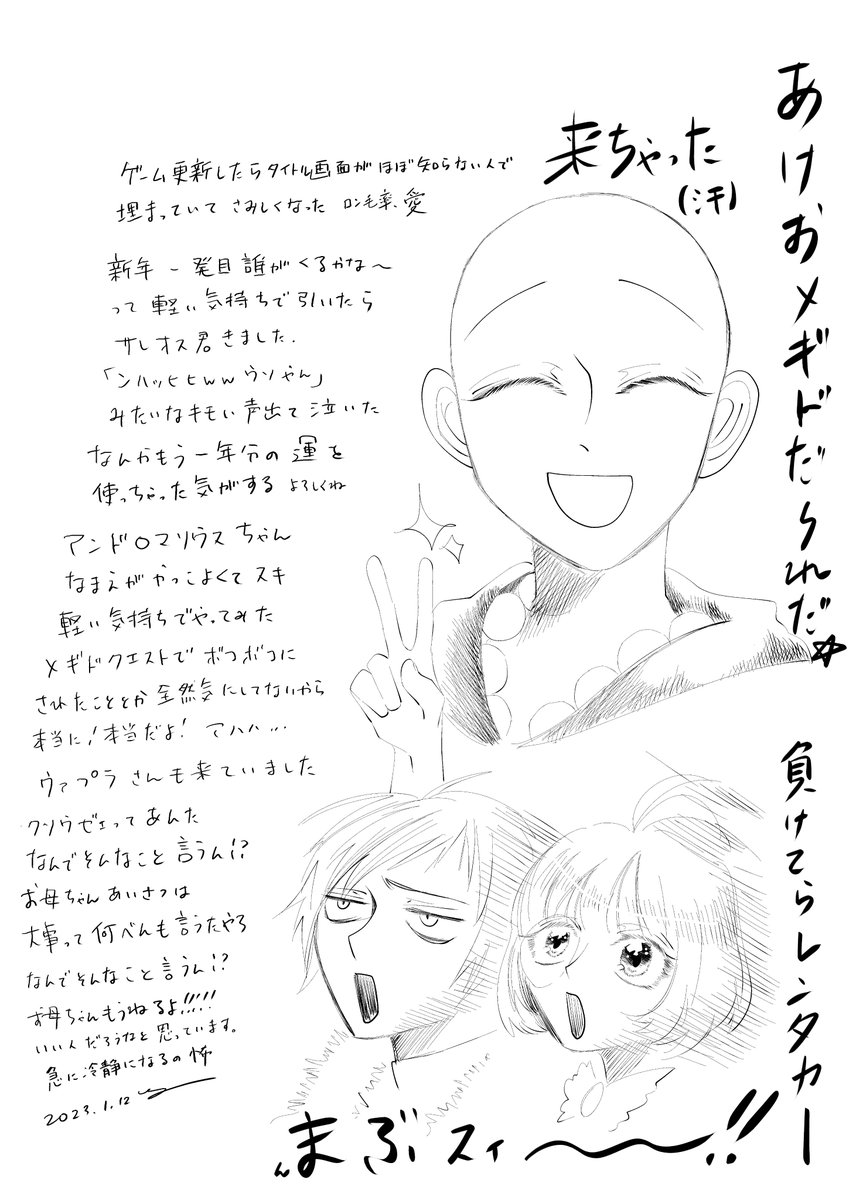 あけおメギドだられだ☆
負けてらレンタカー
来ちゃった
(汗)
ゲーム更新したらタイトル画面がほぼ知らない人で
埋まっていて さみしくなった ロン毛率、愛
新年 一発目 誰がくるかな〜
って 軽い気持ちで引いたら
サレオス君きました.
「ンハッヒヒww ウソやん」
みたいなキモい声出て泣いた
なんかもう一年分の運を
使っちゃった気がする よろしくね
アンドロマリウスちゃん
なまえがかっこよくてスキ
軽い気持ちでやってみた
メギドクエストでボコボコに
されたこととか全然気にしてないから
本当に!本当だよ! アハハ...
ウァプラさんも来ていました
クソウゼェってあんた
なんでそんなこと言うん!?
お母ちゃんあいさつは
大事って何べんも言うたやろ
なんでそんなこと言うん!?
お母ちゃんもうねるよ!!!!!
いい人だろうなと思っています。
急に冷静になるの怖
2023.1.12
んまぶスィ〜〜!!